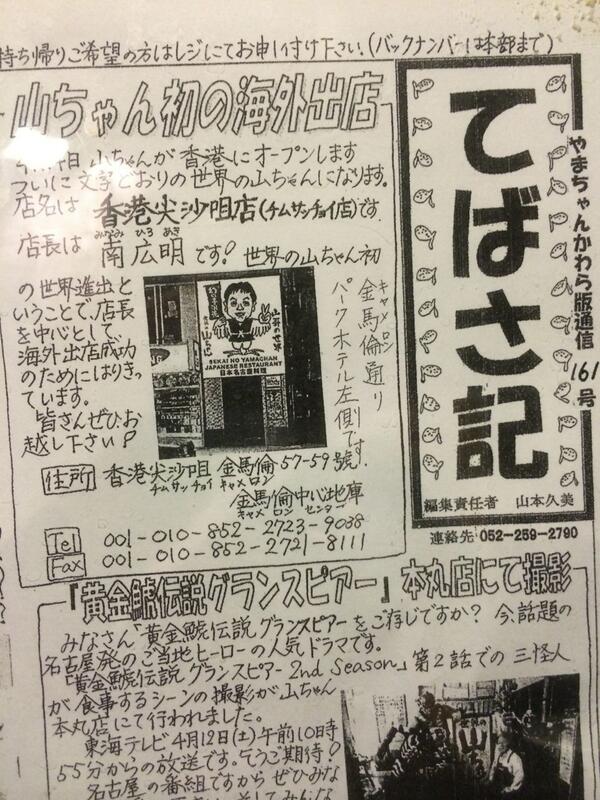 持ち帰りご希望の方はレジにてお申し付け下さい。(バックナンバーは本部まで)
てばさ記
やまちゃんかわら版通信 161号
編集責任者 山本久美
連絡先 052-259-2790
山ちゃん初の海外出店
山ちゃんが香港にオープンします
ついに文字どおりの世界の山ちゃんになります。
店名は 香港尖沙咀店(チムサッチョイ店)です
店長は 南広明です! 世界の山ちゃん初
みなみ ひろ あき
の世界進出と
いうことで、店長
を中心として
海外出店成功
のためにはりきっ
ています。
皆さんぜひお
越し下さい!
キャメロン
金馬倫通り
パークホテル左側です。
SEKAI NO YAMACHAN
JAPANESE RESTAURANT
日本名古屋料理
住所 香港尖沙咀 金馬倫57-59號.
チムサッチョイ キャメロン
金馬倫中心地庫
キャメロン センター
Tel 001-010-852-2723-9038
Fax 001-010-852-2721-8111
『黄金鯱伝説グランスピアー』本丸店にて撮影
みなさん「黄金鯱伝説グランスピアー」をご存じですか? 今、話題の
名古屋発のご当地ヒーローの人気ドラマです。
「黄金鯱伝説グランスピアー 2nd Season」第2話での三怪人
が食事するシーンの撮影が山ちゃん
本丸店にて行われました。
東海テレビ4月12日(土)午前10時
55分からの放送です。乞うご期待!
名古屋の番組ですからぜひみな